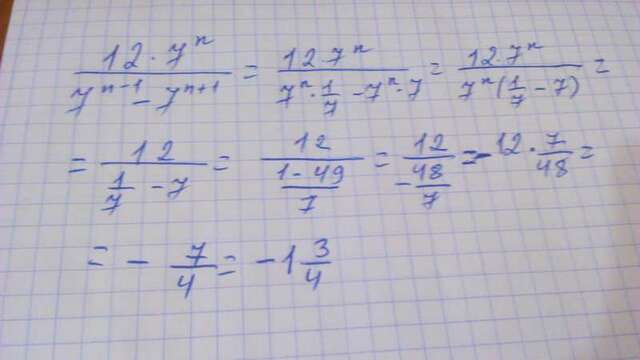 \frac{12 \cdot 7^n}{7^{n-1} - 7^{n+1}} = \frac{12 \cdot 7^n}{7^n \cdot \frac{1}{7} - 7^n \cdot 7} = \frac{12 \cdot 7^n}{7^n (\frac{1}{7} - 7)} =
= \frac{12}{\frac{1}{7} - 7} = \frac{12}{\frac{1-49}{7}} = \frac{12}{-\frac{48}{7}} = -12 \cdot \frac{7}{48} =
= - \frac{7}{4} = -1 \frac{3}{4}